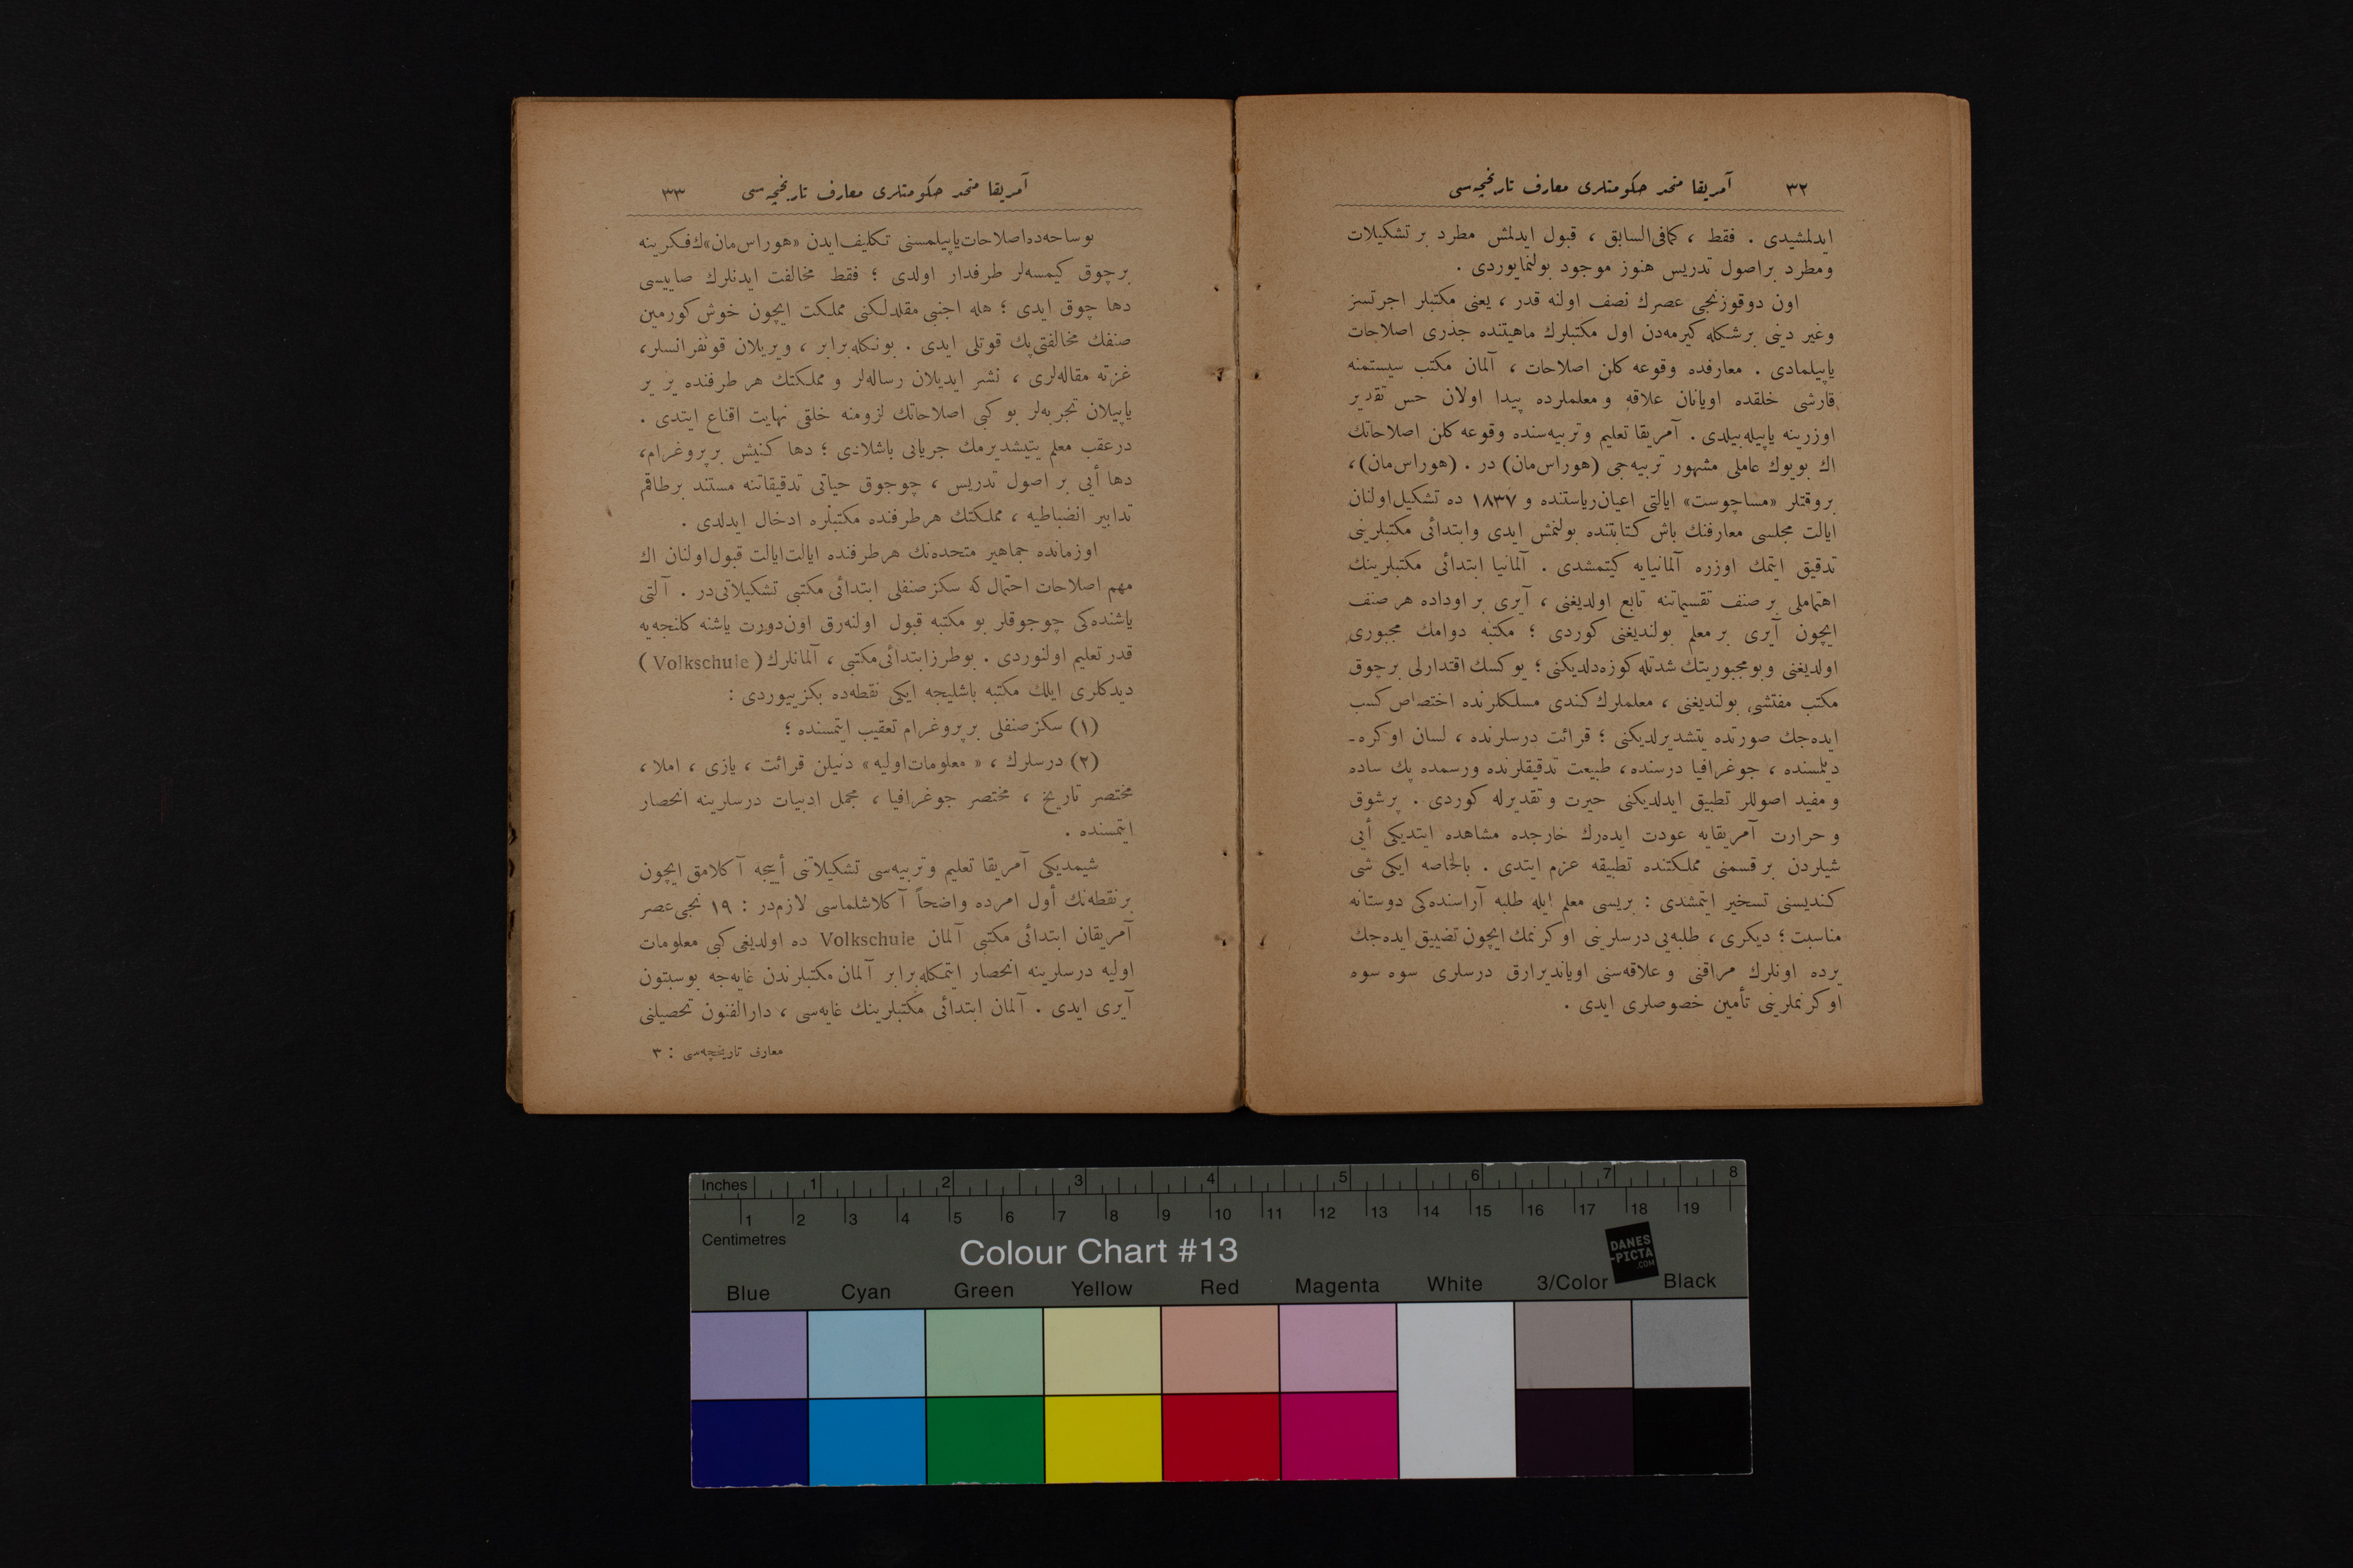 ٣٢ آمریقا متحد حکومتلری معارف تاریخچه‌سی
ایدلمشیدی . فقط ، کمافی‌السابق ، قبول ایدلمش مطرد بر تشکیلات
ومطرد براصول تدریس هنوز موجود بولنمایوردی .
اون دوقوزنجی عصرك نصف اولنه قدر ، یعنی مکتبلر اجرتسز
وغیر دینی برشکله کیرمه‌دن اول مکتبلرك ماهیتنده جذری اصلاحات
یاپیلمادی . معارفده وقوعه کلن اصلاحات ، آلمان مکتب سیستمنه
قارشی خلقده اویانان علاقه ومعلملرده پیدا اولان حس تقدیر
اوزرینه یاپیله‌بیلدی . آمریقا تعلیم وتربیه‌سنده وقوعه کلن اصلاحاتك
اك بویوك عاملی مشهور تربیه‌جی (هوراس‌مان) در . (هوراس‌مان)،
بروقتلر «مساچوست» ایالتی اعیان‌ریاستنده و ١٨٣٧ ده تشکیل‌اولنان
ایالت مجلسی معارفنك باش کتابتنده بولنمش ایدی وابتدائی مکتبلرینی
تدقیق ایتمك اوزره آلمانیایه کیتمشدی . آلمانیا ابتدائی مکتبلرینك
اهتماملی بر صنف تقسیماتنه تابع اولدیغنی ، آیری بر اوداده هر صنف
ایچون آیری بر معلم بولندیغنی کوردی ؛ مکتبه دوامك مجبوری
اولدیغنی وبومجبوریتك شدتله کوزه‌دلدیکنی ؛ یوکسك اقتدارلی برچوق
مکتب مفتشی بولندیغنی ، معلملرك کندی مسلکلرنده اختصاص کسب
ایده‌جك صورتده یتشدیرلدیکنی ؛ قرائت درسلرنده ، لسان اوکره‌ـ
دیلمسنده ، جوغرافیا درسنده، طبیعت تدقیقلرنده ورسمده پك ساده
و مفید اصوللر تطبیق ایدلدیکنی حیرت و تقدیرله کوردی . پرشوق
و حرارت آمریقایه عودت ایده‌رك خارجده مشاهده ایتدیکی أیی
شیلردن بر قسمنی مملکتنده تطبیقه عزم ایتدی . بالخاصه ایکی شی
کندیسنی تسخیر ایتمشدی : بریسی معلم ایله طلبه آراسنده‌کی دوستانه
مناسبت ؛ دیکری ، طلبه‌یی درسلرینی اوکرنمك ایچون تضییق ایده‌جك
یرده اونلرك مراقنی و علاقه‌سنی اویاندیرارق درسلری سوه سوه
اوکرنملرینی تأمین خصوصلری ایدی .
آمریقا متحد حکومتلری معارف تاریخچه‌سی ٣٣
بوساحه‌ده‌اصلاحات‌یاپیلمسنی تکلیف‌ایدن «هوراس‌مان»ك‌فکرینه
برچوق کیمسه‌لر طرفدار اولدی ؛ فقط مخالفت ایدنلرك صاییسی
دها چوق ایدی ؛ هله اجنبی مقلدلکنی مملکت ایچون خوش کورمین
صنفك مخالفتی‌پك قوتلی ایدی . بونکله‌برابر ، ویریلان قونفرانسلر،
غزته مقاله‌لری ، نشر ایدیلان رساله‌لر و مملکتك هر طرفنده یر یر
یاپیلان تجربه‌لر بو کبی اصلاحاتك لزومنه خلقی نهایت اقناع ایتدی .
درعقب معلم یتیشدیرمك جریانی باشلادی ؛ دها کنیش برپروغرام،
دها أیی بر اصول تدریس ، چوجوق حیاتی تدقیقاتنه مستند برطاقم
تدابیر انضباطیه ، مملکتك هرطرفنده مکتبلره ادخال ایدلدی .
اوزمانده جماهیر متحده‌نك هرطرفنده ایالت‌ایالت قبول‌اولنان اك
مهم اصلاحات احتمال‌که سکزصنفلی ابتدائی‌مکتبی تشکیلاتی‌در . آلتی
یاشنده‌کی چوجوقلر بو مکتبه قبول اولنه‌رق اون‌دورت یاشنه کلنجه‌یه
قدر تعلیم اولنوردی . بوطرزابتدائی‌مکتبی ، آلمانلرك ( Volkschule )
دیدکلری ایلك مکتبه باشلیجه ایکی نقطه‌ده بکزییوردی :
(١) سکزصنفلی برپروغرام تعقیب ایتمسنده ؛
(٢) درسلرك ، « معلومات‌اولیه » دنیلن قرائت ، یازی ، املا ،
مختصر تاریخ ، مختصر جوغرافیا ، مجمل ادبیات درسلرینه انحصار
ایتمسنده .
شیمدیکی آمریقا تعلیم وتربیه‌سی تشکیلاتنی أییجه آکلامق ایچون
برنقطه‌نك أول امرده واضحاً آکلاشلماسی لازم‌در : ١٩ نجی‌عصر
آمریقان ابتدائی مکتبی آلمان Volkschule ده اولدیغی کبی معلومات
اولیه درسلرینه انحصار ایتمکله‌برابر آلمان مکتبلرندن غایه‌جه بوسبتون
آیری ایدی . آلمان ابتدائی مکتبلرینك غایه‌سی ، دارالفنون تحصیلنی
معارف تاریخچه‌سی : ٣
Inches 1 2 3 4 5 6 7 8
1 2 3 4 5 6 7 8 9 10 11 12 13 14 15 16 17 18 19
Centimetres
Colour Chart #13
DANES
-PICTA
.COM
Blue Cyan Green Yellow Red Magenta White 3/Color Black